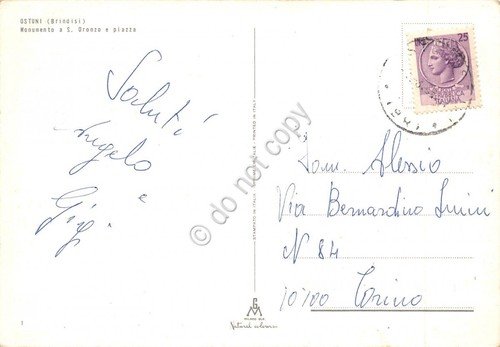 OSTUNI (Brindisi)
Monumento a S. Oronzo e piazza
Saluti
Angelo
e
Gigi
25
ITALIANA
do not copy
STAMPATO IN ITALIA
PRINTED IN ITALY
Alessio
Via Bernardino Luini
N 84
10100 Torino
GM
MILANO
1